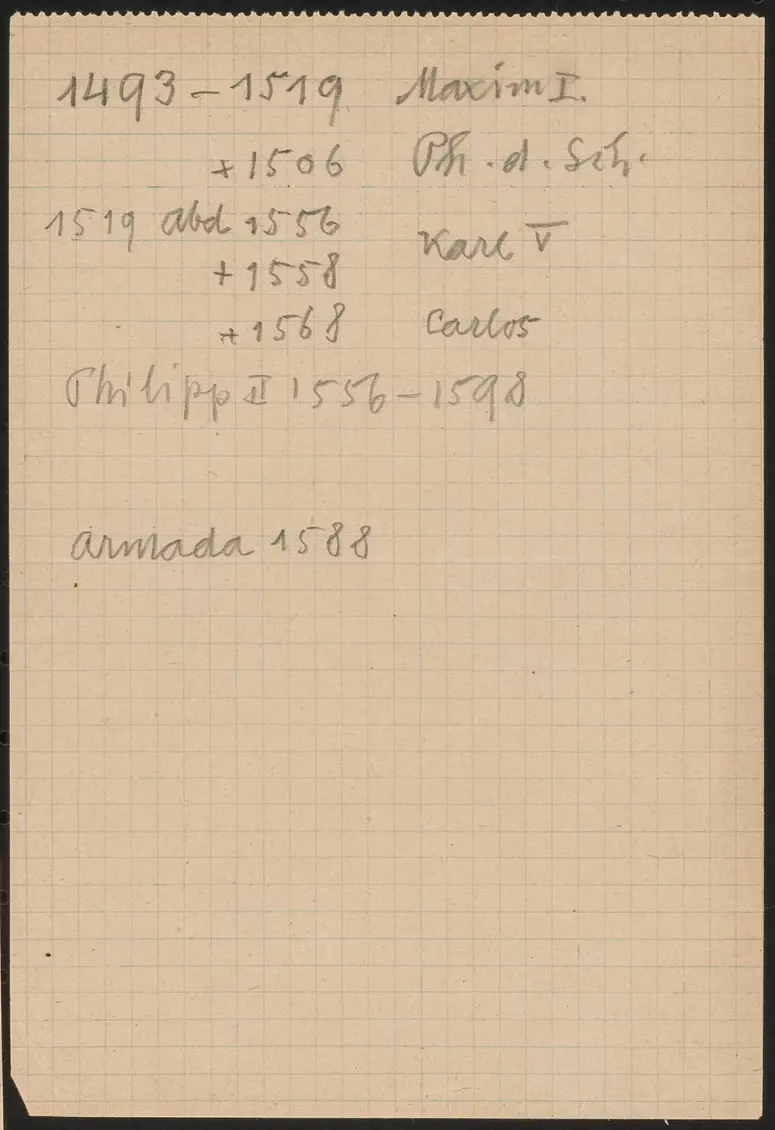 1493 – 1519 Maxim I.
+ 1506 Ph. d. Sch.
1519 abd 1556
Karl V
+ 1558
+ 1568 Carlos
Philipp II 1556 – 1598
Armada 1588